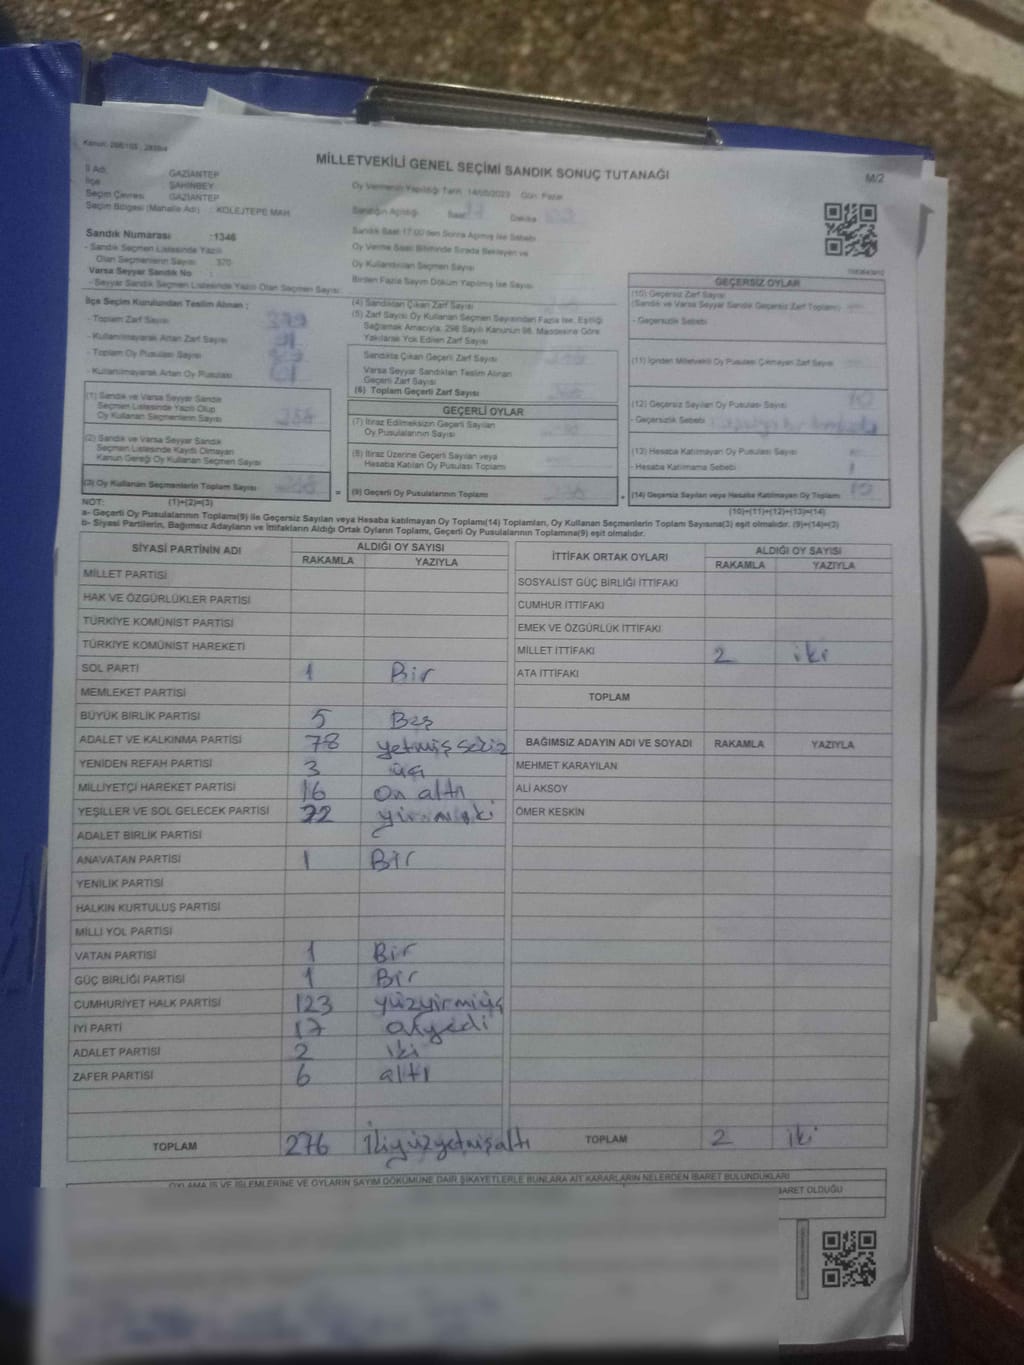 MİLLETVEKİLİ GENEL SEÇİMİ SANDIK SONUÇ TUTANAĞI
M/2
İl Adı: GAZİANTEP
İlçe ŞAHİNBEY
Seçim Çevresi GAZİANTEP
Seçim Bölgesi (Mahalle Adı) : KOLEJTEPE MAH.
Oy Vermenin Yapıldığı Tarih: 14/05/2023 Gün: Pazar
Sandığın Açıldığı Saat Dakika
Sandık Numarası :1346
- Sandık Seçmen Listesinde Yazılı
Olan Seçmenlerin Sayısı 370
Varsa Seyyar Sandık No :
- Seyyar Sandık Seçmen Listesinde Yazılı Olan Seçmen Sayısı:
Sandık Saat 17:00'den Sonra Açılmış İse Sebebi
Oy Verme Saati Bitiminde Sırada Bekleyen ve
Oy Kullandırılan Seçmen Sayısı
Birden Fazla Sayım Döküm Yapılmış İse Sayısı
İlçe Seçim Kurulundan Teslim Alınan ;
- Toplam Zarf Sayısı
- Kullanılmayarak Artan Zarf Sayısı
- Toplam Oy Pusulası Sayısı
- Kullanılmayarak Artan Oy Pusulası
(1) Sandık ve Varsa Seyyar Sandık
Seçmen Listesinde Yazılı Olup
Oy Kullanan Seçmenlerin Sayısı
(2) Sandık ve Varsa Seyyar Sandık
Seçmen Listesinde Kaydı Olmayan
Kanun Gereği Oy Kullanan Seçmen Sayısı
(3) Oy Kullanan Seçmenlerin Toplam Sayısı
(4) Sandıktan Çıkan Zarf Sayısı
(5) Zarf Sayısı Oy Kullanan Seçmen Sayısından Fazla İse, Eşitliği
Sağlamak Amacıyla, 298 Sayılı Kanunun 98. Maddesine Göre
Yakılarak Yok Edilen Zarf Sayısı
Sandıkta Çıkan Geçerli Zarf Sayısı
Varsa Seyyar Sandıktan Teslim Alınan
Geçerli Zarf Sayısı
(6) Toplam Geçerli Zarf Sayısı
GEÇERLİ OYLAR
(7) İtiraz Edilmeksizin Geçerli Sayılan
Oy Pusulalarının Sayısı
(8) İtiraz Üzerine Geçerli Sayılan veya
Hesaba Katılan Oy Pusulası Toplamı
= (9) Geçerli Oy Pusulalarının Toplamı +
GEÇERSİZ OYLAR
(10) Geçersiz Zarf Sayısı
(Sandık ve Varsa Seyyar Sandık Geçersiz Zarf Toplamı)
- Geçersizlik Sebebi
(11) İçinden Milletvekili Oy Pusulası Çıkmayan Zarf Sayısı
(12) Geçersiz Sayılan Oy Pusulası Sayısı 10
- Geçersizlik Sebebi
(13) Hesaba Katılmayan Oy Pusulası Sayısı
- Hesaba Katılmama Sebebi
(14) Geçersiz Sayılan veya Hesaba Katılmayan Oy Toplamı 10
NOT: (1)+(2)=(3)
(10)+(11)+(12)+(13)=(14)
a- Geçerli Oy Pusulalarının Toplamı(9) ile Geçersiz Sayılan veya Hesaba katılmayan Oy Toplamı(14) Toplamları, Oy Kullanan Seçmenlerin Toplam Sayısına(3) eşit olmalıdır. (9)+(14)=(3)
b- Siyasi Partilerin, Bağımsız Adayların ve İttifakların Aldığı Ortak Oyların Toplamı, Geçerli Oy Pusulalarının Toplamına(9) eşit olmalıdır.
SİYASİ PARTİNİN ADI ALDIĞI OY SAYISI
RAKAMLA YAZIYLA
MİLLET PARTİSİ
HAK VE ÖZGÜRLÜKLER PARTİSİ
TÜRKİYE KOMÜNİST PARTİSİ
TÜRKİYE KOMÜNİST HAREKETİ
SOL PARTİ 1 Bir
MEMLEKET PARTİSİ
BÜYÜK BİRLİK PARTİSİ 5 Beş
ADALET VE KALKINMA PARTİSİ 78 yetmiş sekiz
YENİDEN REFAH PARTİSİ 3 üç
MİLLİYETÇİ HAREKET PARTİSİ 16 on altı
YEŞİLLER VE SOL GELECEK PARTİSİ 22 yirmi iki
ADALET BİRLİK PARTİSİ
ANAVATAN PARTİSİ 1 Bir
YENİLİK PARTİSİ
HALKIN KURTULUŞ PARTİSİ
MİLLİ YOL PARTİSİ
VATAN PARTİSİ 1 Bir
GÜÇ BİRLİĞİ PARTİSİ 1 Bir
CUMHURİYET HALK PARTİSİ 123 yüzyirmiüç
İYİ PARTİ 17 onyedi
ADALET PARTİSİ 2 iki
ZAFER PARTİSİ 6 altı
TOPLAM 276 ikiyüzyetmişaltı
İTTİFAK ORTAK OYLARI ALDIĞI OY SAYISI
RAKAMLA YAZIYLA
SOSYALİST GÜÇ BİRLİĞİ İTTİFAKI
CUMHUR İTTİFAKI
EMEK VE ÖZGÜRLÜK İTTİFAKI
MİLLET İTTİFAKI 2 iki
ATA İTTİFAKI
TOPLAM
BAĞIMSIZ ADAYIN ADI VE SOYADI RAKAMLA YAZIYLA
MEHMET KARAYILAN
ALİ AKSOY
ÖMER KESKİN
TOPLAM 2 iki
OYLAMA İŞ VE İŞLEMLERİNE VE OYLARIN SAYIM DÖKÜMÜNE DAİR ŞİKAYETLERLE BUNLARA AİT KARARLARIN NELERDEN İBARET BULUNDUKLARI
İBARET OLDUĞU